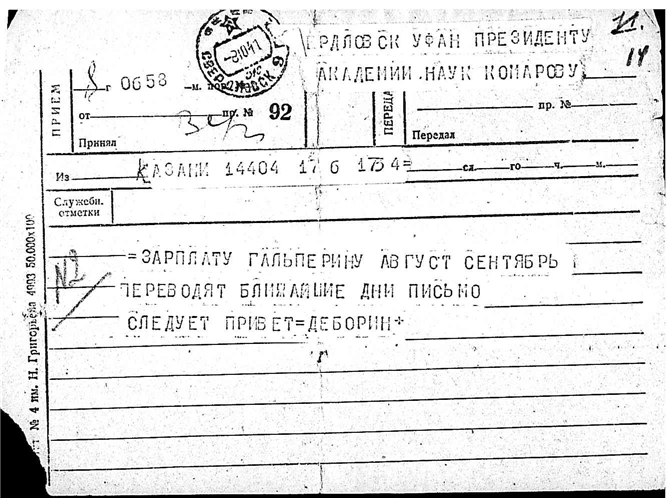 РДЛОВСК УФАН ПРЕЗИДЕНТУ
АКАДЕМИИ НАУК КОМАРОВУ
11.
14
СВЕРДЛОВСК 9
-81041
ПРИЕМ
8 г 0658 —м. пор.
от пр. № 92
Принял
ПЕРЕДА
пр. №
Передал
Из КАЗАНИ 14404 17 6 1734= сл. го ч. м.
Служебн.
отметки
№2
=ЗАРПЛАТУ ГАЛЬПЕРИНУ АВГУСТ СЕНТЯБРЬ
ПЕРЕВОДЯТ БЛИЖАЙШИЕ ДНИ ПИСЬМО
СЛЕДУЕТ ПРИВЕТ=ДЕБОРИН+
№ 4 им. Н. Григорьева 4903 50.000х100